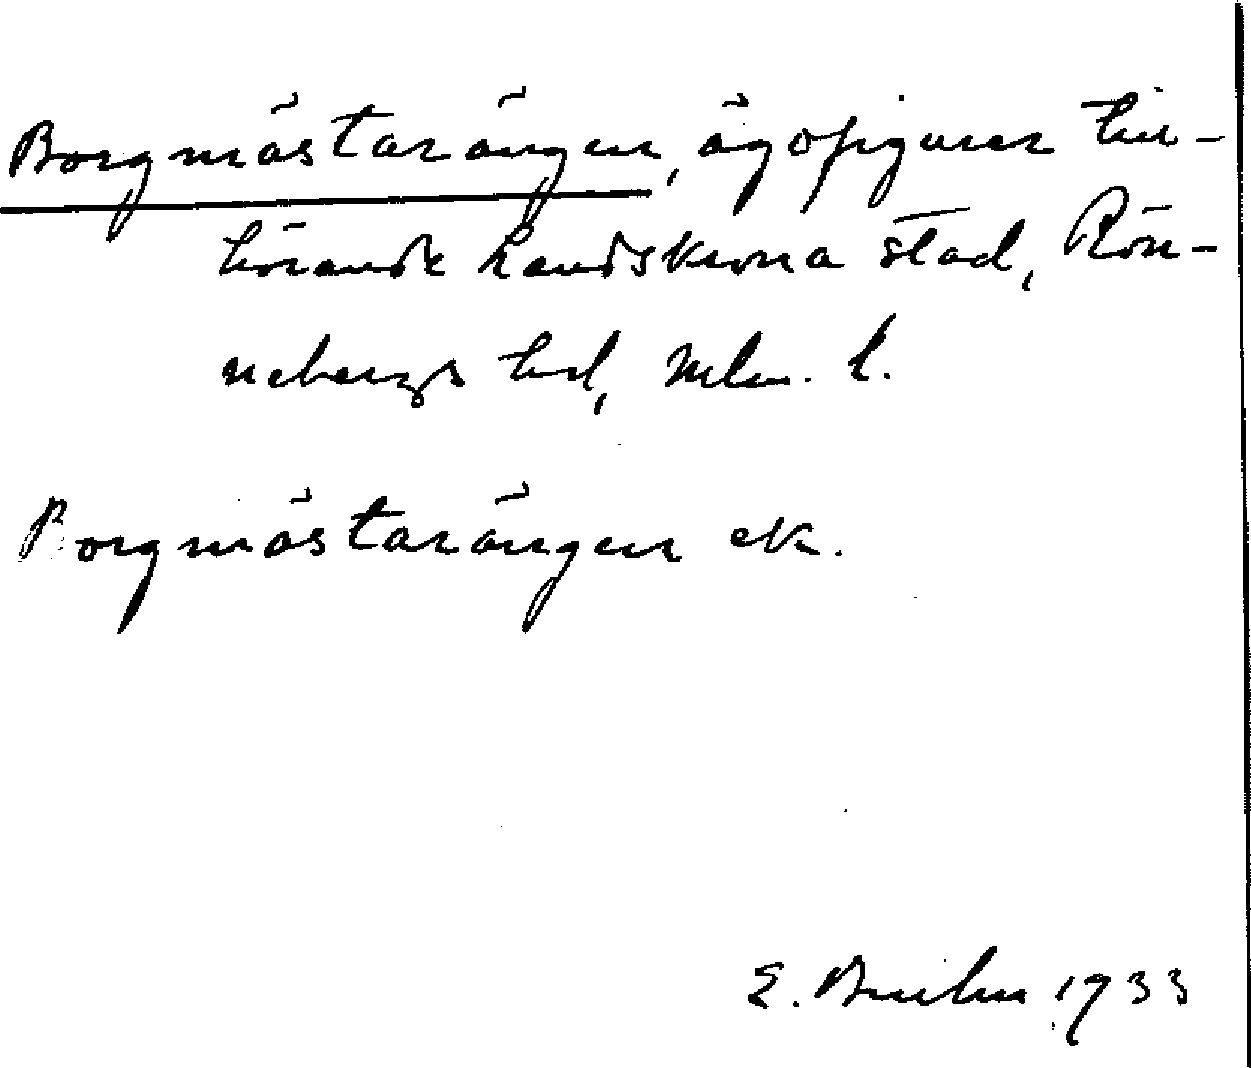 Borgmästarängen, ägofigurer till-
hörande Landskrona stad, Rön-
nebergs hd, Mlm. l.
Borgmästarängen ek.
E. Bruhn 1933